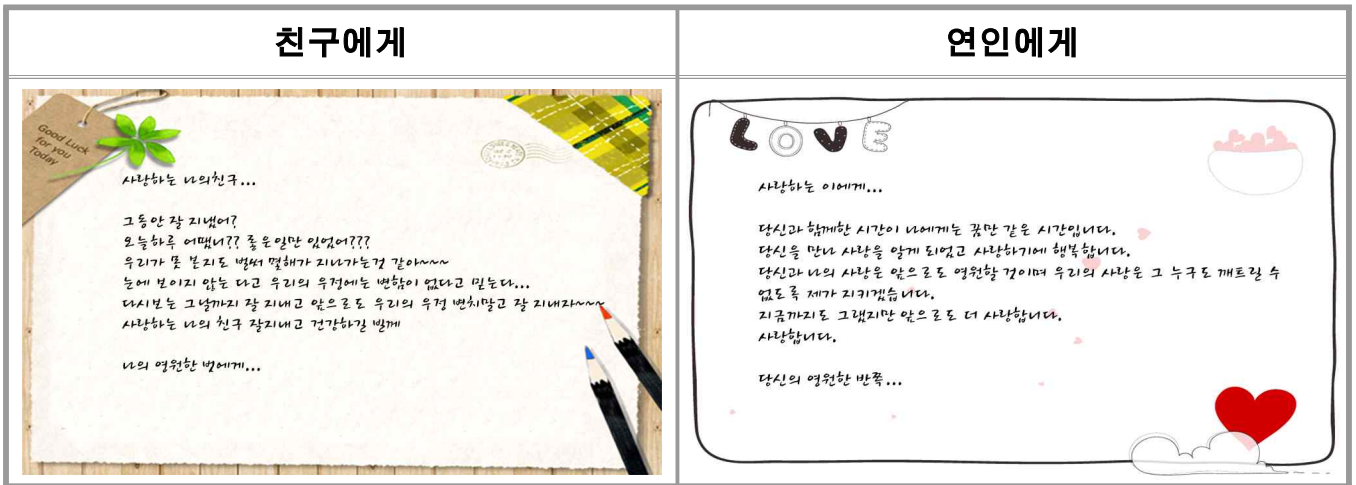 친구에게
Good Luck
for you
Today
사랑하는 나의친구...
그동안 잘 지냈어?
오늘하루 어땠니?? 좋은일만 있었어???
우리가 못 본지도 벌써 몇해가 지나가는것 같아~~~
눈에 보이지 않는 다고 우리의 우정에는 변함이 없다고 믿는다...
다시보는 그날까지 잘 지내고 앞으로도 우리의 우정 변치말고 잘 지내자~~~
사랑하는 나의 친구 잘지내고 건강하길 빌께
나의 영원한 벗에게...
연인에게
LOVE
사랑하는 이에게...
당신과 함께한 시간이 나에게는 꿈만 같은 시간입니다.
당신을 만나 사랑을 알게 되었고 사랑하기에 행복합니다.
당신과 나의 사랑은 앞으로도 영원할 것이며 우리의 사랑은 그 누구도 깨트릴 수
없도록 제가 지키겠습니다.
지금까지도 그랬지만 앞으로도 더 사랑합니다.
사랑합니다.
당신의 영원한 반쪽...